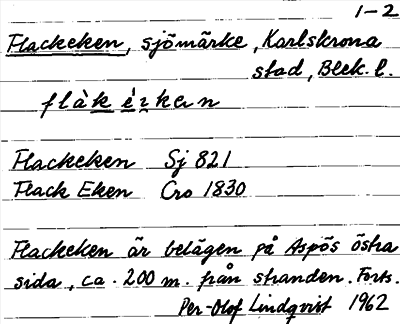 1-2
Flackeken, sjömärke, Karlskrona
stad, Blek. l.
flàk èzkan
Flackeken Sj 821
Flack Eken Cro 1830
Flackeken är belägen på Aspös östra
sida, ca. 200 m. från stranden. Forts.
Per-Olof Lindqvist 1962